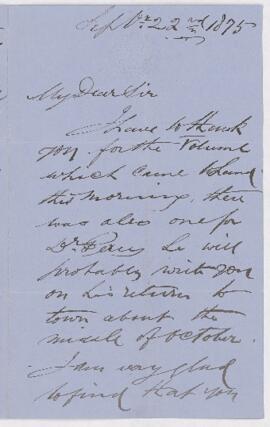 Sept br 22nd 1875
My Dear Sir
I have to thank
you for the Volume
which came to hand
this morning, there
was also one for
Dr. he will
probably write you
on his return to
town about the
middle of October.
I am very glad
to find that you